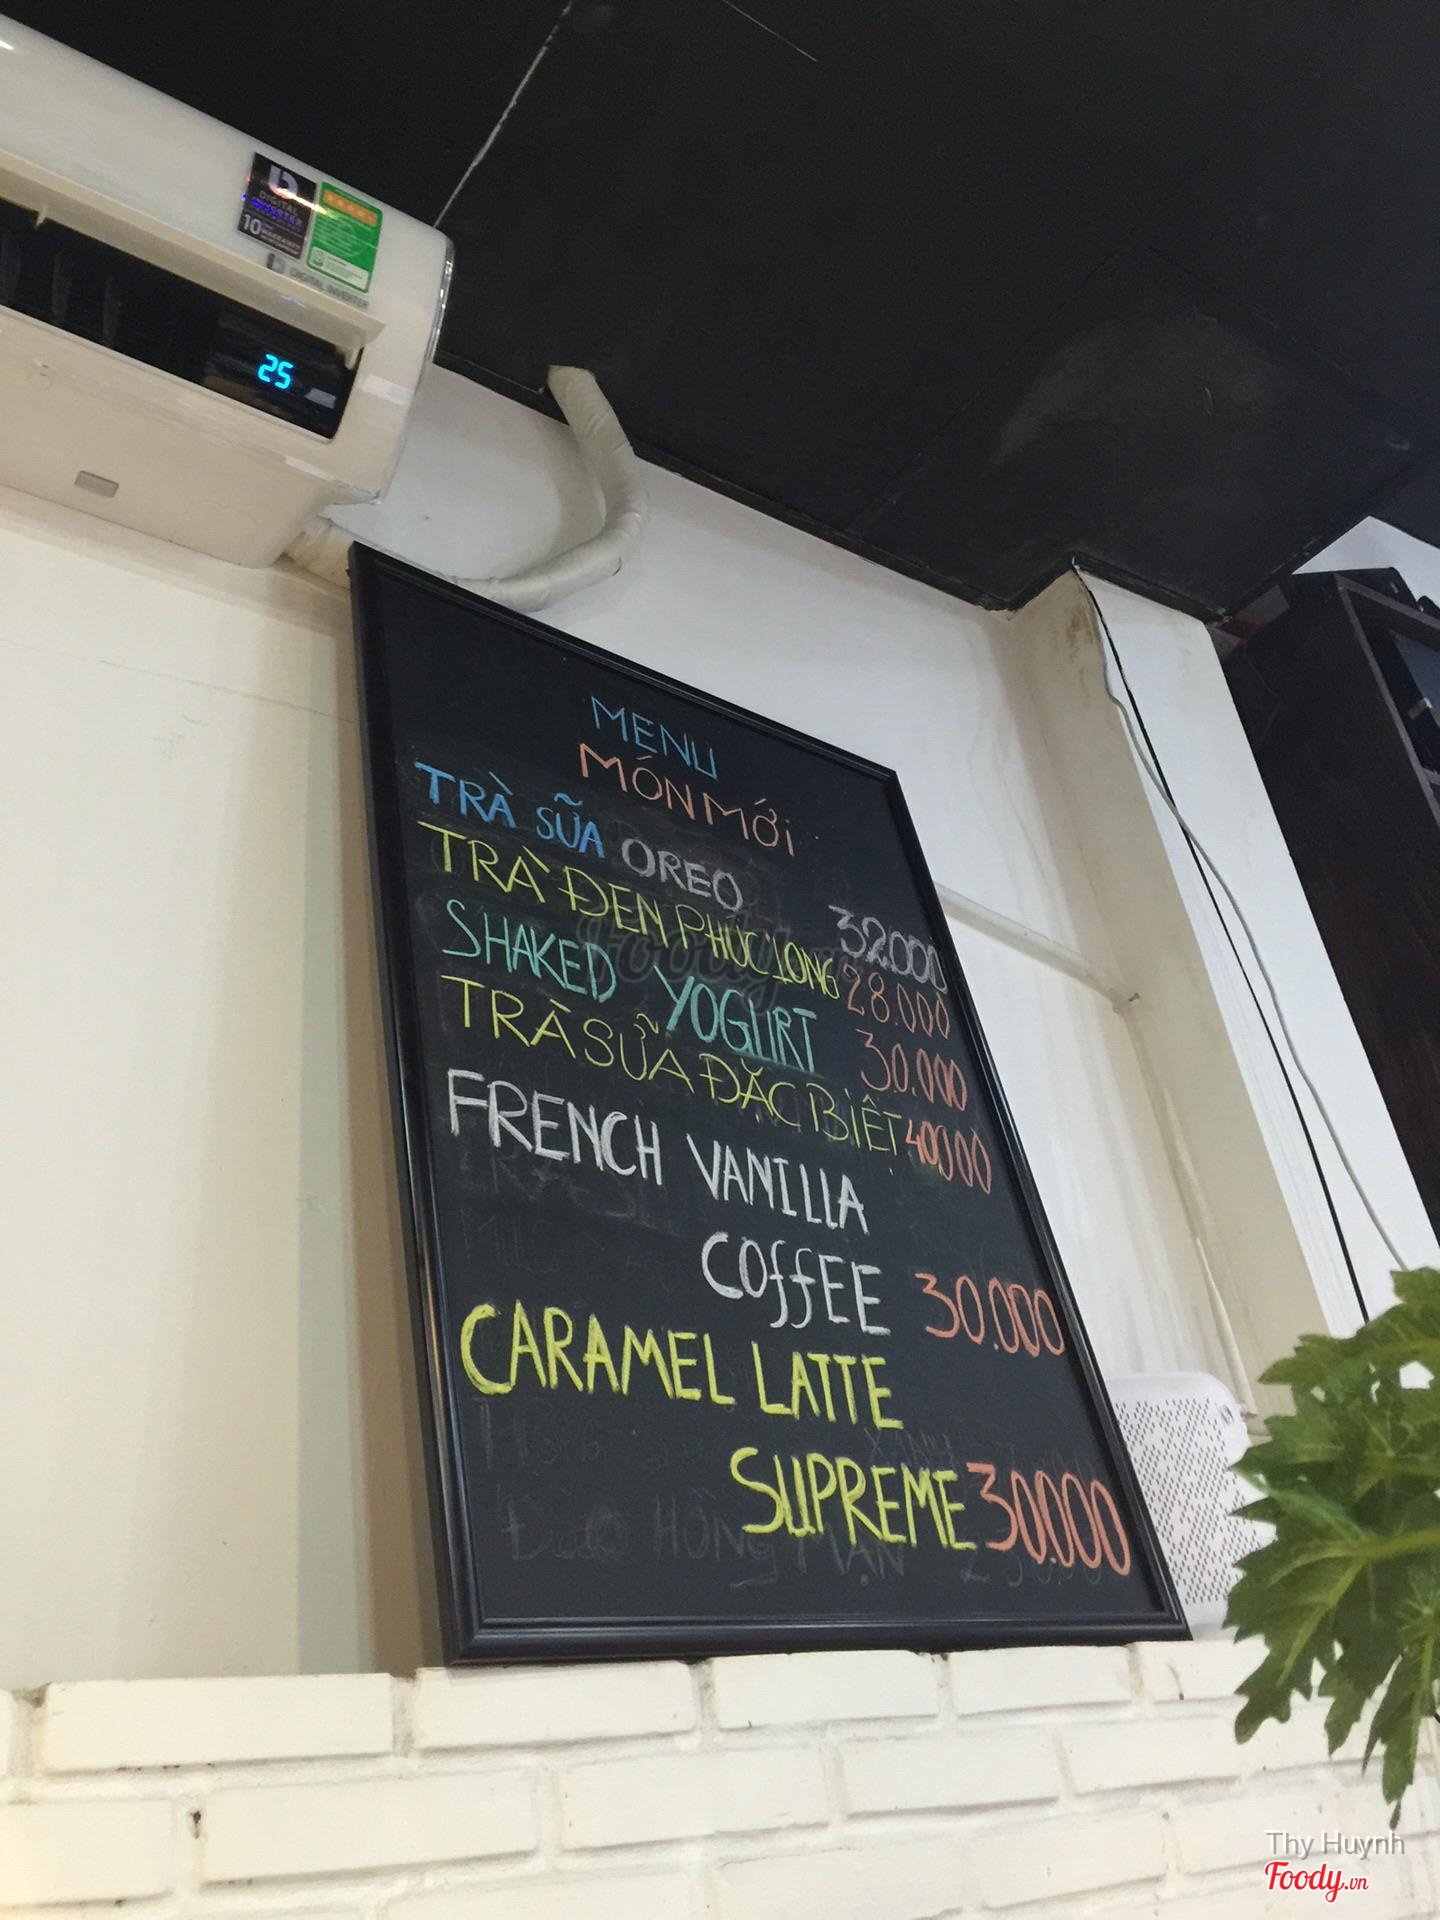 DIGITAL
INVERTER
10
DIGITAL INVERTER
25
MENU
MÓN MỚI
TRÀ SỮA OREO 32.000
TRÀ ĐEN PHÚC LONG 28.000
SHAKED YOGURT 30.000
TRÀ SỮA ĐẶC BIỆT 40000
FRENCH VANILLA
COFFEE 30.000
CARAMEL LATTE
SUPREME 30.000
Thy Huynh
Foody.vn